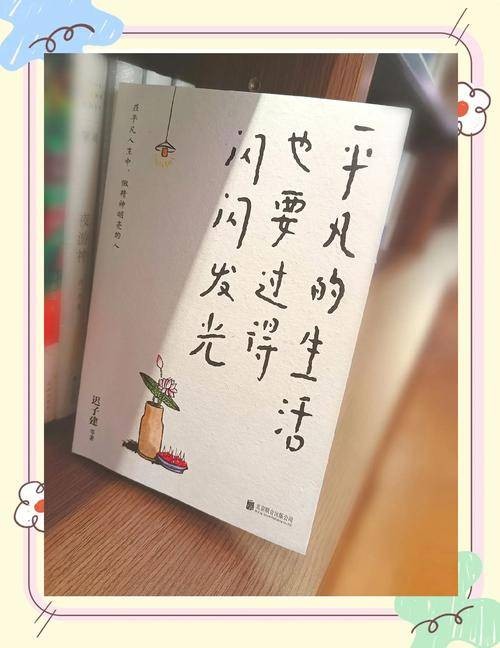 平凡的生活
也要过得
闪闪发光
在平凡人生中，做精神明亮的人
迟子建
等著
北京联合出版公司